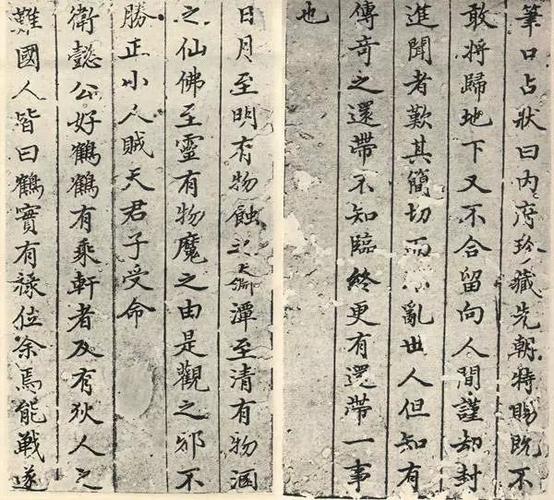 筆口占狀曰內府珍藏先朝特賜既不
敢將歸地下又不合留向人間謹却封
進聞者歎其簡切而不亂世人但知有
傳奇之還帶不知臨終更有還帶一事
也
日月至明有物蝕之潭至清有物溷
之仙佛至靈有物魔之由是觀之邪不
勝正小人賊天君子受命
衛懿公好鶴鶴有乘軒者及有狄人之
難國人皆曰鶴實有祿位余焉能戰遂